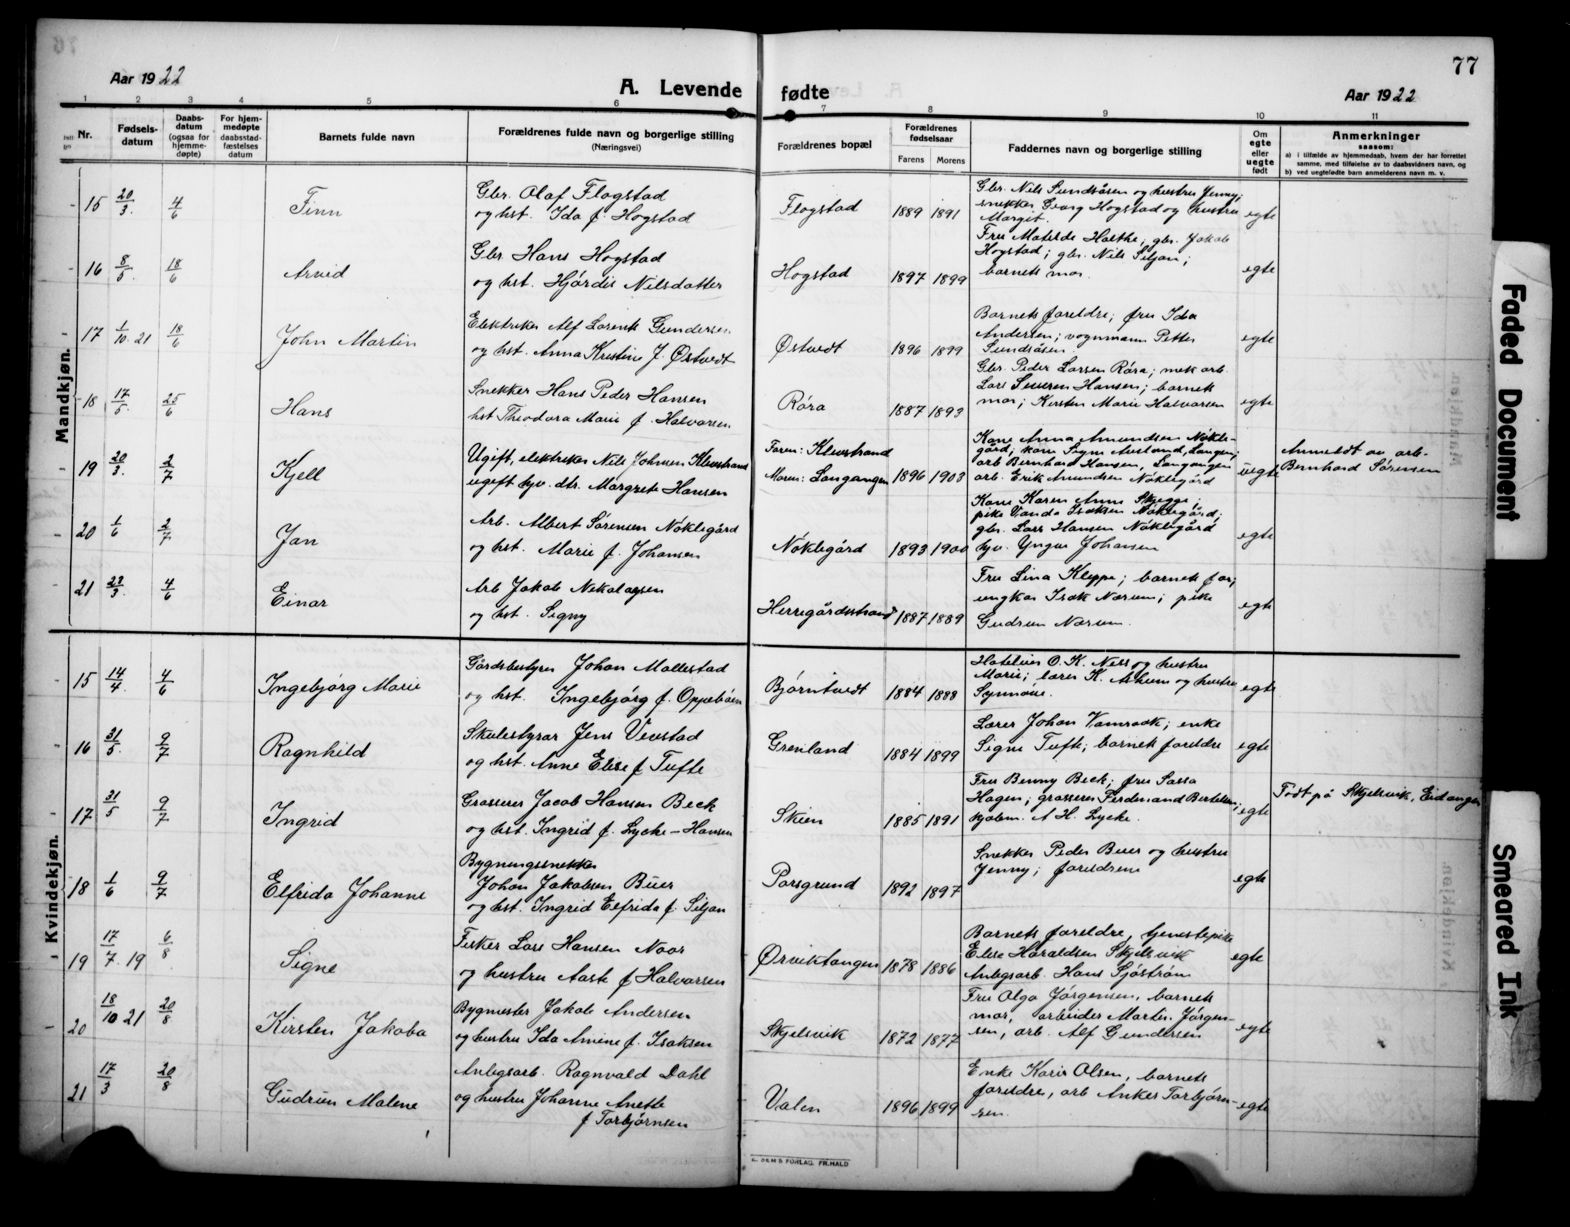 77
Aar 1922
A. Levende fødte
Aar 1922
1 2 3 4 5 6 7 8 9 10 11
Nr.
Fødsels-
datum
Daabs-
datum
(ogsaa for
hjemme-
døpte)
For hjem-
medøpte
daabsstad-
fæstelses
datum
Barnets fulde navn
Forældrenes fulde navn og borgerlige stilling
(Næringsvei)
Forældrenes bopæl
Forældrenes
fødselsaar
Farens Morens
Faddernes navn og borgerlige stilling
Om
egte
eller
uegte
født
Anmerkninger
saasom:
a) i tilfælde av hjemmedaab, hvem der har forrettet
samme, med tilføielse av to daabsvidners navn, og
b) ved uegtefødte barn anmelderens navn m. v.
Mandkjøn.
15 20/3. 4/6 Finn
Gbr. Olaf Flogstad
og hst. Ida f. Hogstad
Flogstad 1889 1891
Gbr. Nils Sundsåsen og hustru Jenny;
snekker Georg Hogstad og hustru
Margit.
egte
16 8/5 18/6 Arvid
Gbr Hans Hogstad
og hst. Hjørdis Nilsdatter
Hogstad 1897 1899
Fru MatildeHolthe; gbr. Jakob
Hogstad; gbr. Nils Siljan;
barnets mor.
egte
17 1/10. 21 18/6 John Martin
Elektriker Alf Lorents Gundersen
og hst. Anna Kristine f. Østvedt
Østvedt 1896 1899
Barnets foreldre; fru Ida
Andersen; vognmann Petter
Sundsåsen.
egte
18 17/5. 25/6 Hans
Snekker Hans Peder Hansen
hst Theodora Marie f. Halvorsen
Røra 1887 1893
Gbr. Peder Larsen Røra; mek arb.
Lars Severen Hansen; barnets
mor; Kirsten Marie Halvorsen
egte
19 20/3. 2/7 Kjell
Ugift, elektriker Nils Johnsen Klevstrand
ugift tjv. dtr. Margrete Hansen
Faren: Klevstrand
Moren: Langangen 1896 1903
Kone Anna Amundsen Nøkle-
gård, kone Signe Langangen;
arb Bernhard Hansen, Langangen
arb. Erik Amundsen Nøklegård
uegte
Anmeldt av arb-
Bernhard Sørensen
20 1/6 2/7 Jan
Arb. Albert Sørensen Nøklegård
og hst. Marie f. Johansen
Nøklegård 1893 1900
Kone Karen Anna Skjegge;
pike Vanda Isaksen Nøklegård;
gbr. Lars Hansen Nøklegård
tjv. Yngvar Johansen
egte
21 23/3. 4/6 Einar
Arb Jakob Nikolaysen
og hst. Signy
Herregårdsstrand 1887 1889
Fru Lina Kleppe; barnets far;
ungkar Isak Narum; pike
Gudrun Narum.
egte
Kvindekjøn.
15 14/4. 4/6 Ingebjørg Marie
Gårdsbestyrer Johan Mollestad
og hst. Ingebjørg f. Oppebøen
Bjørntvedt 1884 1888
Hoteleier O. K. Ness og hustru
Marie; lærer K. og hustru
Synnøve.
egte
16 31/5. 9/7 Ragnhild
Skulestyrar Jens Vevstad
og hst. Anne Elise f Tufte
Grenland 1884 1899
Lærer Johan Vamraak; enke
Signe Tufte; barnets foreldre
egte
17 31/5 9/7 Ingrid
Grosserer Jacob Hansen Beck
og hst. Ingrid f. Lycke-Hansen
Skien 1885 1891
Fru Benny Beck; fru Sassa
Hagen; grosserer Ferdinand Bertelsen;
kjøbm. A H. Lycke.
egte
Født på Skjelsvik, Eidanger
18 1/6 9/7 Elfrida Johanne
Bygningssnekker
Johan Jakobsen Buer
og hst. Ingrid Elfrida f. Siljan
Porsgrund 1892 1897
Snekker Peder Buer og hustru
Jenny; foreldrene
egte
19 17/7. 19 6/8 Signe
Fisker Lars Hansen Naar
og hustru Aaste f Halvorsen
Ørviktangen 1878 1886
Barnets foreldre, tjenestepike
Elise Haraldsen Skjelsvik
Anlegsarb. Hans Sjøstrøm
egte
20 18/10 21 20/8 Kirsten Jakoba
Bygmester Jakob Andersen
og hustru Ida Amine f. Isaksen
Skjelsvik 1872 1877
Fru Olga Jørgensen, barnets
mor, arbeider Martin Jørgen-
sen, arb. Alf Gundersen
egte
21 17/3 20/8 Gudrun Malene
Anlegsarb. Ragnvald Dahl
og hustru Johanne Anette
f Torbjørnsen
Valen 1896 1899
Enke Karin Olsen, barnets
foreldre, arb Anker Torbjørn-
sen.
egte
FORLAG, FR.HALD
Faded Document
Smeared Ink